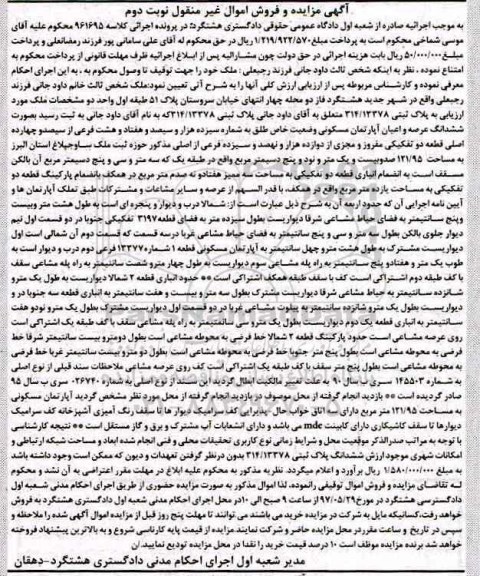 آگهی مزایده و فروش اموال غیر منقول نوبت دوم
به موجب اجرائیه صادره از شعبه اول دادگاه عمومی حقوقی دادگستری هشتگرد در پرونده اجرائی کلاسه ۹۶۱۶۹۵ محکوم علیه آقای
موسی شماخی محکوم است به پرداخت مبلغ ۱/۲۱۹/۹۲۲/۵۷۰ ریال در حق محکوم له آقای علی سامانی پور فرزند رمضانعلی و پرداخت
مبلغ ۵۰/۰۰۰/۰۰۰ ریال بابت هزینه اجرائی در حق دولت چون مشارالیه پس از ابلاغ اجرائیه ظرف مهلت قانونی از پرداخت محکوم به
امتناع نموده ، نظر به اینکه شخص ثالث داود جانی فرزند رجبعلی : ملک خود را جهت توقیف تا وصول محکوم به ، به این اجرای احکام
معرفی نموده و کارشناس مربوطه پس از ارزیابی ارزش کلی آنها را به شرح آتی تعیین نمود: ملک شخص ثالث خانم داود جانی فرزند
رجبعلی واقع در شهر جدید هشتگرد فاز دو محله چهار انتهای خیابان سروستان پلاک ۵۱ طبقه اول واحد دو مشخصات ملک مورد
ارزیابی به پلاک ثبتی ۳۱۴/۱۳۳۷۸ متعلق به آقای داود جانی پلاک ثبتی ۳۱۴/۱۳۳۷۸ که به نام آقای داود جانی به ثبت رسید بصورت
ششدانگ عرصه و اعیان آپارتمان مسکونی وضعیت خاص طلق به شماره سیزده هزار و سیصد و هفتاد و هشت فرعی از سیصد و چهارده
اصلی قطعه دو تفکیکی مفروز و مجزی از دوازده هزار و نهصد و سیزده فرعی از اصلی مذکور حوزه ثبت ملک ساوجبلاغ استان البرز
به مساحت ۱۲۱/۹۵ صدوبیست و یک متر و نود و پنج دسیمتر مربع واقع در طبقه یک که سه متر و سی و پنج دسیمتر مربع آن بالکن
مسقف است به انضمام انباری قطعه دو تفکیکی به مساحت سه ممیز هفتاد و نه صدم متر مربع در همکف بانضمام پارکینگ قطعه دو
تفکیکی به مساحت یازده متر مربع واقع در همکف، با قدر السهم از عرصه و سایر مشاعات و مشترکات طبق تملک آپارتمان ها و
آیین نامه اجرایی آن که حدود اربعه آن به شرح ذیل عبارت است از: شمالا درب و دیوار و پنجره ای است به طول هشت متر وبیست
و پنج سانتیمتر به فضای حیاط مشاعی شرقا دیواریست بطول سیزده متر به فضای قطعه ۳۱۹۷ تفکیکی جنوبا در دو قسمت اول نیم
دیوار جلوی بالکن بطول سه متر و سی و پنج سانتیمتر به فضای حیاط مشاعی غربا در سه قسمت که قسمت دوم آن شمالی است اول
دیواریست مشترک به طول هشت مترو چهل سانتیمتر به آپارتمان مسکونی قطعه ۱ شماره ۱۳۳۷۷ فرعی دوم درب و دیوار است به
طوب یک متر و هفتادو پنج سانتیمتر به راه پله مشاعی سوم دیواریست به طول چهار مترو شصت سانتیمتر به راه پله مشاعی سقف
با کف طبقه دوم اشتراکی است کف با سقف طبقه همکف اشتراکی است ** حدود انباری قطعه ۲ شمالا دیواریست به طول یک مترو
شانزده سانتیمتر به حیاط مشاعی شرقا دیواریست مشترک بطول سه متر و بیست و هفت سانتیمتر به انباری قطعه سه جنوبا در و
دیواریست بطول یک مترو شانزده سانتیمتر به پیلوت مشاعی غربا در دو قسمت اول دیواریست مشترک بطول یک مترو نودو هفت
سانتیمتر به انباری قطعه یک دوم دیواریست بطول یک مترو سی سانتیمتر به راه پله مشاعی سقف با کف طبقه یک اشتراکی است
روی عرصه مشاعی است حدود پارکینگ قطعه ۲ شمالا خط فرضی به محوطه مشاعی است بطول دومترو بیست سانتیمتر شرقا خط
فرضی به محوطه مشاعی است بطول پنج متر جنوبا خط فرضی به محوطه مشاعی است بطول دو مترو بیست سانتیمتر غربا خط فرضی
به محوطه مشاعی است بطول پنج متر سقف با کف طبقه یک اشتراکی است کف روی عرصه مشاعی ملاحظات سند قبلی از نوع اصلی
به شماره ۱۴۵۵۰۳ سری ا سال ۹۰ به علت تغییر مالکیت ابطال گردید این سند از نوع اصلی به شماره ۰۲۶۷۴۰ سری ب سال ۹۵
صادر گردیده است ** بازدید انجام گرفته از محل موجود در بازدید انجام گرفته از محل مورد نظر مشخص گردید آپارتمان مسکونی
به مساحت ۱۲۱/۹۵ متر مربع دارای سه اتاق خواب حال پذیرایی کف سرامیک دیوار ها تا سقف رنگ آمیزی آشپزخانه کف سرامیک
دیوارها تا سقف کاشیکاری دارای کابینت mdc می باشد و دارای انشعابات آب مشترک و برق و گاز مستقل است ** نتیجه کارشناسی
با توجه به مراتب صدرالذکر موقعیت محل و شرایط زمانی نوع کاربری تحقیقات محلی و فنی انجام شده ابعاد و مساحت شبکه ارتباطی و
امکانات شهری موجود ارزش ششدانگ پلاک ثبتی ۳۱۴/۱۳۳۷۸ بدون درنظر گرفتن تعهدات و دیون که ممکن است وجود داشته باشد
به مبلغ ۱/۵۸۰/۰۰۰/۰۰۰ ریال برآورد و اعلام میگردد. نظریه مذکور به محکوم علیه ابلاغ در مهلت مقرر اعتراضی به آن نشد و محکوم
له تقاضای مزایده و فروش اموال توقیفی رانموده، لذا اموال مذکور به صورت مزایده حضوری از طریق اجرای احکام مدنی شعبه اول
دادگستری هشتگرد در مورخ ۹۷/۰۵/۲۹ از ساعت ۹ صبح الی ۱۰ در محل اجرای احکام مدنی شعبه اول دادگستری هشتگرد به فروش
خواهد رفت، کسانیکه مایل به شرکت در مزایده خرید می باشند می توانند تا مهلت پنج روز قبل از مزایده اموال آگهی شده را ملاحظه و
سپس در تاریخ و ساعت مقرر در محل مزایده حاضر و شرکت نمایند مزایده از قیمت پایه کارناسی شروع و به بالاترین پیشنهاد فروخته
خواهد شد برنده مزایده موظف است ۱۰ درصد قیمت خرید را نقدا در محل مزایده تودیع نمایید.ن/
مدیر شعبه اول اجرای احکام مدنی دادگستری هشتگرد-دهقان